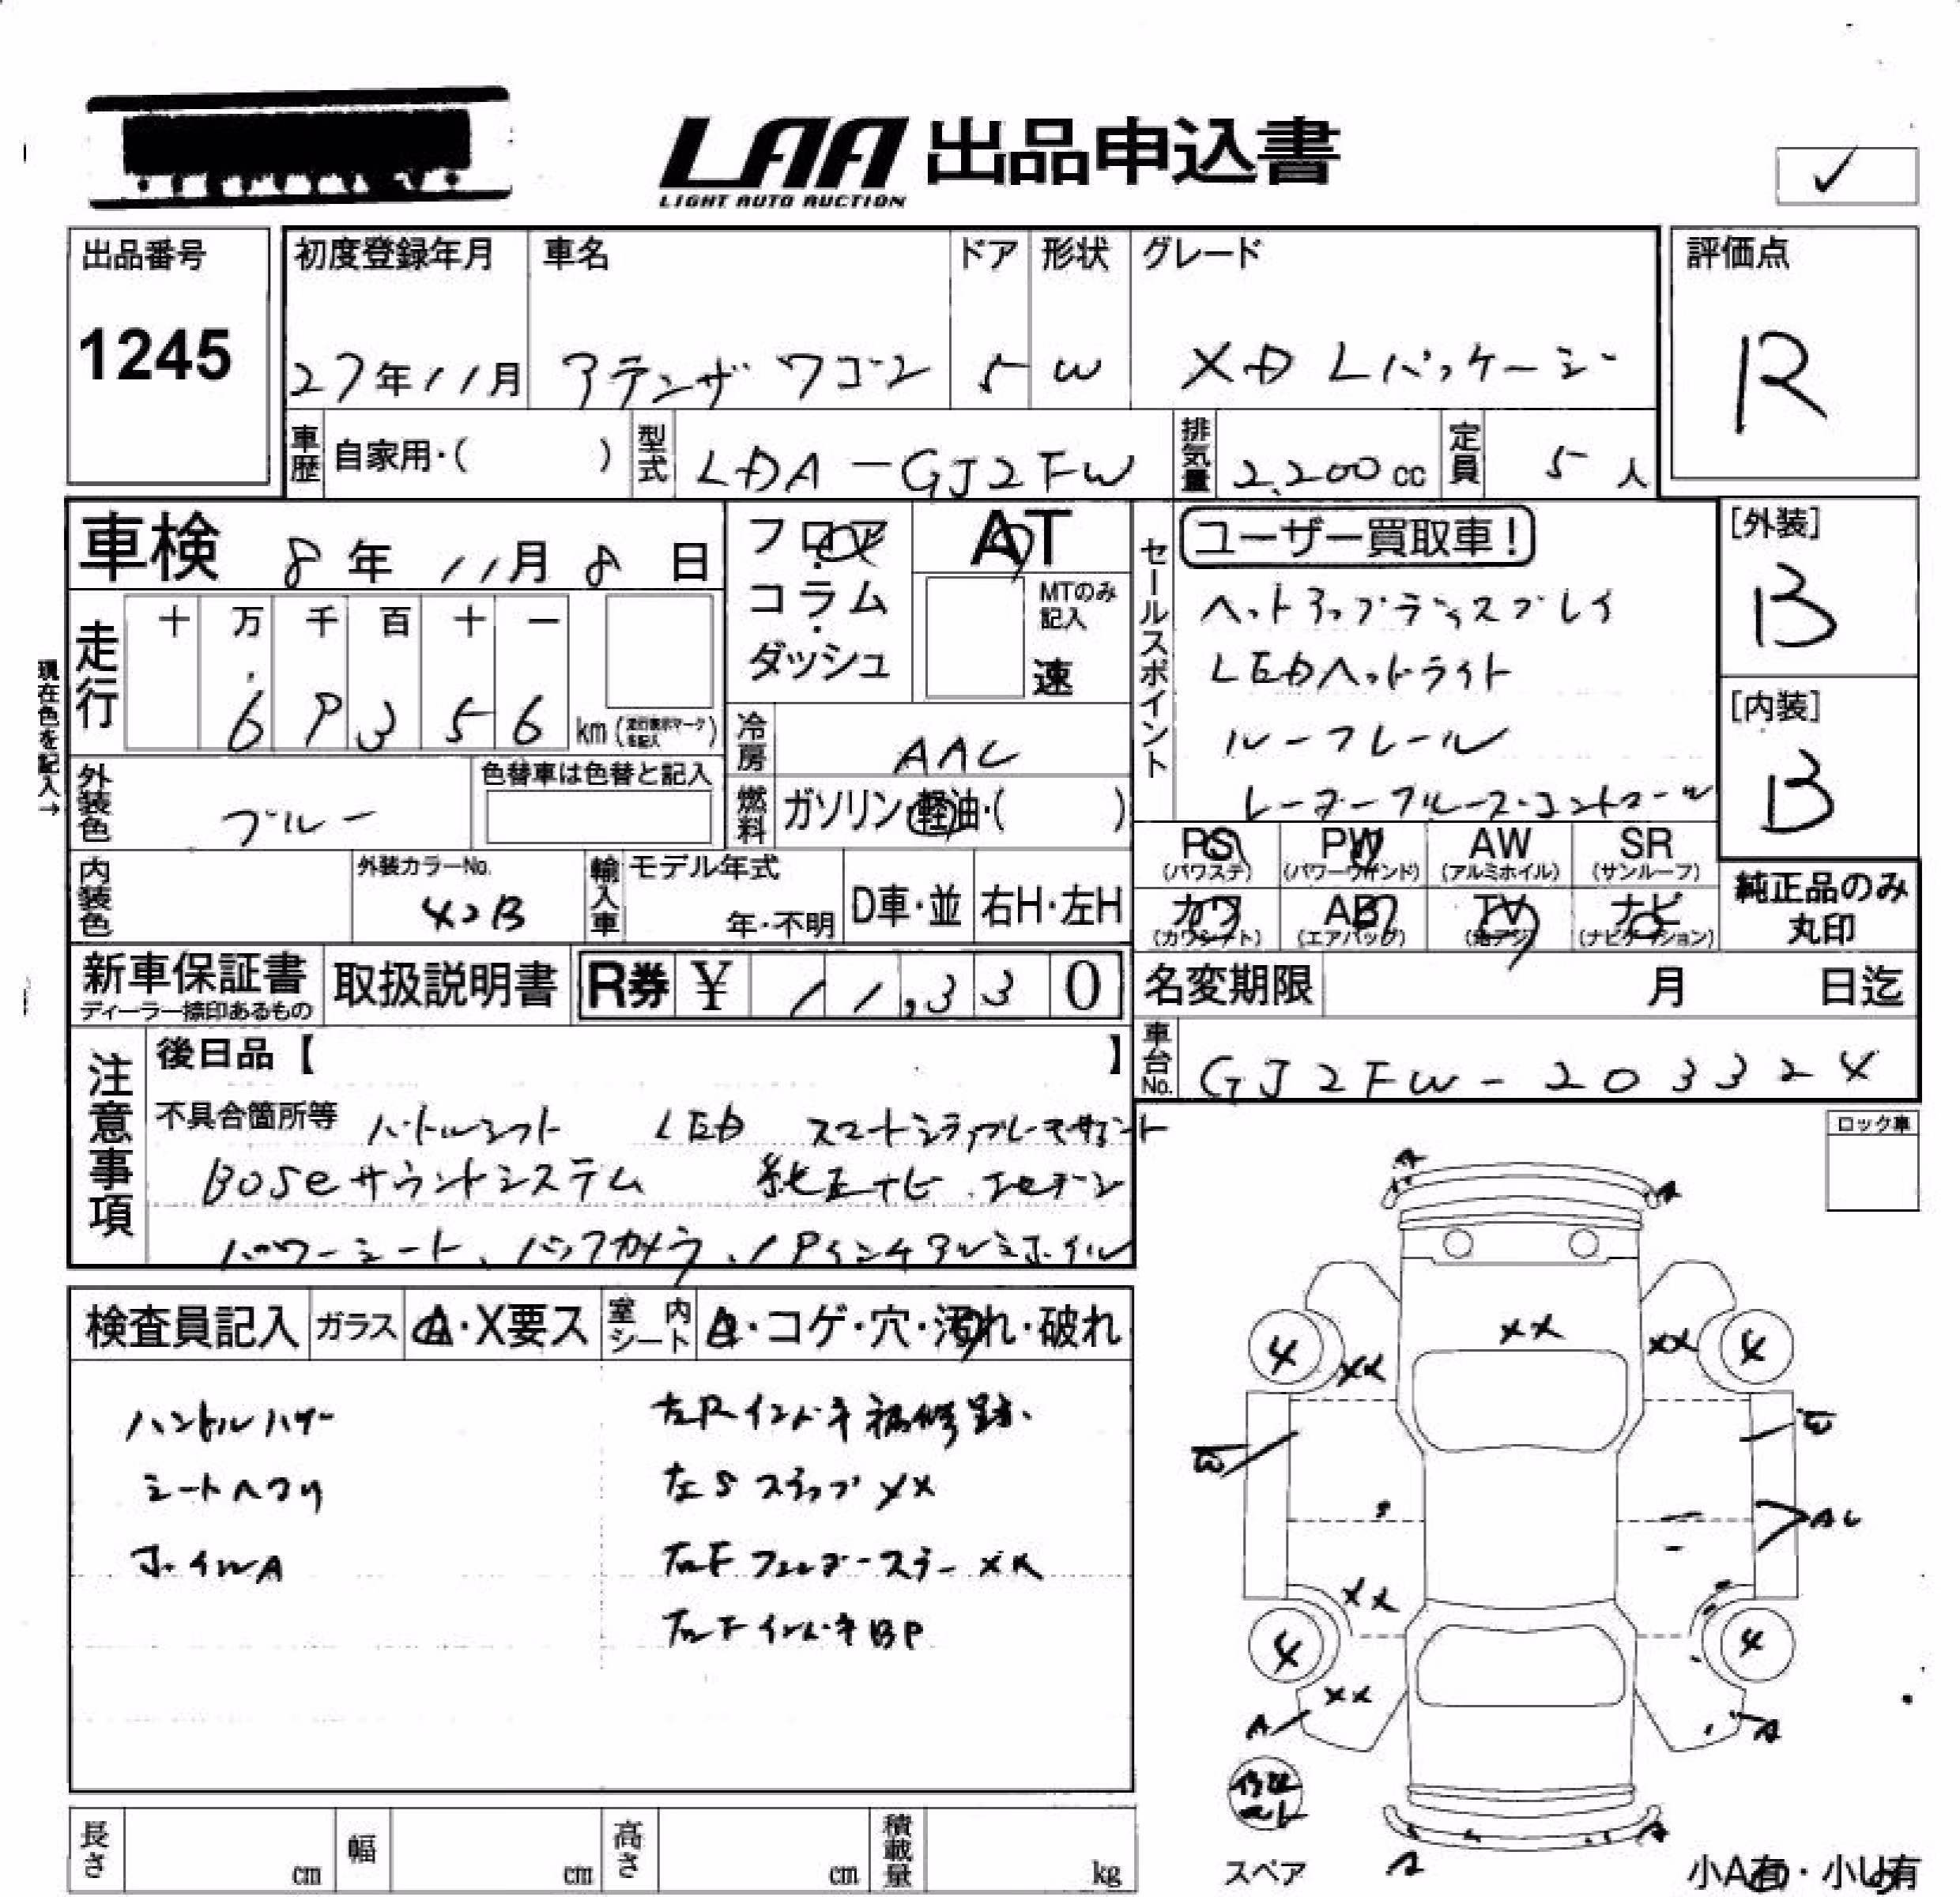 LAA 出品申込書
LIGHT AUTO AUCTION
✓
出品番号
1245
初度登録年月
27年11月
車名
アテンザ ワゴン
ドア
5
形状
W
グレード
XD Lパッケージ
評価点
R
車歴 自家用・( )
型式 LDA-GJ2FW
排気量 2,200cc
定員 5人
車検 8年11月8日
フロア・コラム・ダッシュ
AT
MTのみ記入
速
セールスポイント
ユーザー買取車!
ヘットアップディスプレイ
LEDヘッドライト
ルーフレール
レーダークルーズ・コントロール
[外装]
B
[内装]
B
現在色を記入→
走行
十 万 千 百 十 一
6 9 3 5 6 km(走行表示マークを記入)
冷房 AAC
燃料 ガソリン・軽油・( )
外装色 ブルー
色替車は色替と記入
内装色
外装カラーNo.
42B
輸入車
モデル年式
年・不明
D車・並
右H・左H
PS (パワステ)
PW (パワーウインド)
AW (アルミホイル)
SR (サンルーフ)
カワ (カワシート)
AB (エアバッグ)
TV (地デジ)
ナビ (ナビゲーション)
純正品のみ丸印
新車保証書
ディーラー捺印あるもの
取扱説明書
R券 ¥ 11,330
名変期限 月 日迄
車台No. GJ2FW-203324
注意事項
後日品【 】
不具合箇所等 パドルシフト LED スマートシティブレーキサポート
BOSEサウンドシステム 純正ナビ フルセグ
パワーシート、バックカメラ、19インチアルミホイル
ロック車
検査員記入
ガラス A・X要ス
室内シート A・コゲ・穴・汚れ・破れ
ハンドルハゲ
シートヘタリ
ホイルA
左Rインパネ補修跡
左Sステップ XX
左右Fフェンダーステー XX
右Fインパネ BP
A
A
XX
4
XX
XX
4
W
W
AU
XX
4
4
XX
A
A
A
スペア
小A有・小U有
長さ cm
幅 cm
高さ cm
積載量 kg